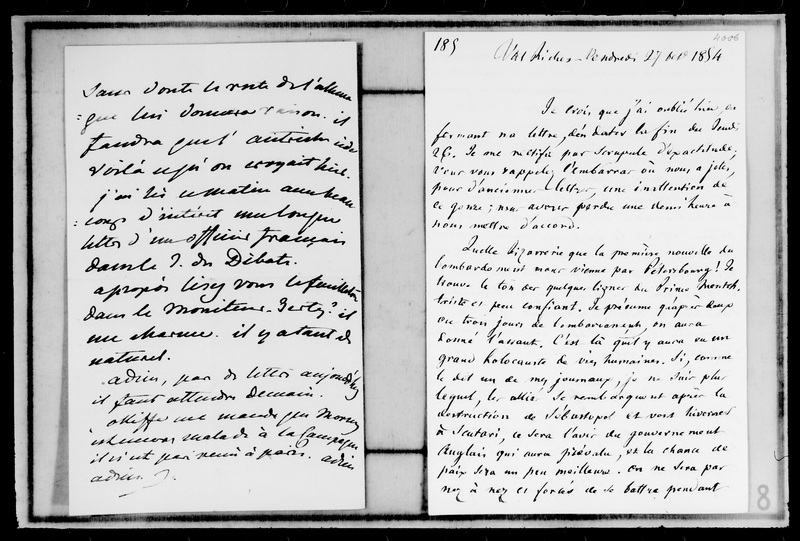 Sans doute le reste de l'allema
:gne lui donnera raison. il
faudra que l'autriche cède
voilà ce qu'on croyait hier.
j'ai lu ce matin avec beau
:coup d'intérêt une longue
lettre d'un officier français
dans le J. des Débats.
apropos lisez vous le feuilleton
dans le Moniteur. il
me charme. il y a tant de
naturel.
adieu, pas de lettre aujourd'hui
il faut attendre demain.
me mande que Morny
est malade à la Campagne
il n'est pas venu à paris. adieu
adieu. J.
185
4006
Val Richer - Vendredi 27 oct 1854
Je crois que j'ai oublié hier, en
fermant ma lettre, d'en dater la fin du Jeudi
26. Je me rectifie par scrupule d'exactitude;
vous vous rappelez l'embarras où nous a jetés,
pour d'anciennes lettres, une inattention de
ce genre; nous avons perdu une demi heure à
nous mettre d'accord.
Quelle bizarrerie que la première nouvelle du
bombardement nous vienne par Pétersbourg! Je
trouve le ton des quelques lignes du Prince Mentsch.
triste et peu confiant. Je présume qu'après deux
ou trois jours de bombardement, on aura
donné l'assaut. C'est là qu'il y aura eu un
grand holocauste de vies humaines. Si, comme
le dit un de mes journaux, je ne sais plus
lequel, les alliés se rembarquent après la
destruction de Sébastopol et vont hiverner
à Scutari, ce sera l'avis du gouvernement
Anglais qui aura prévalu, et la chance de
paix sera un peu meilleure. On ne sera pas
nez à nez et forcés de se battre pendant
8